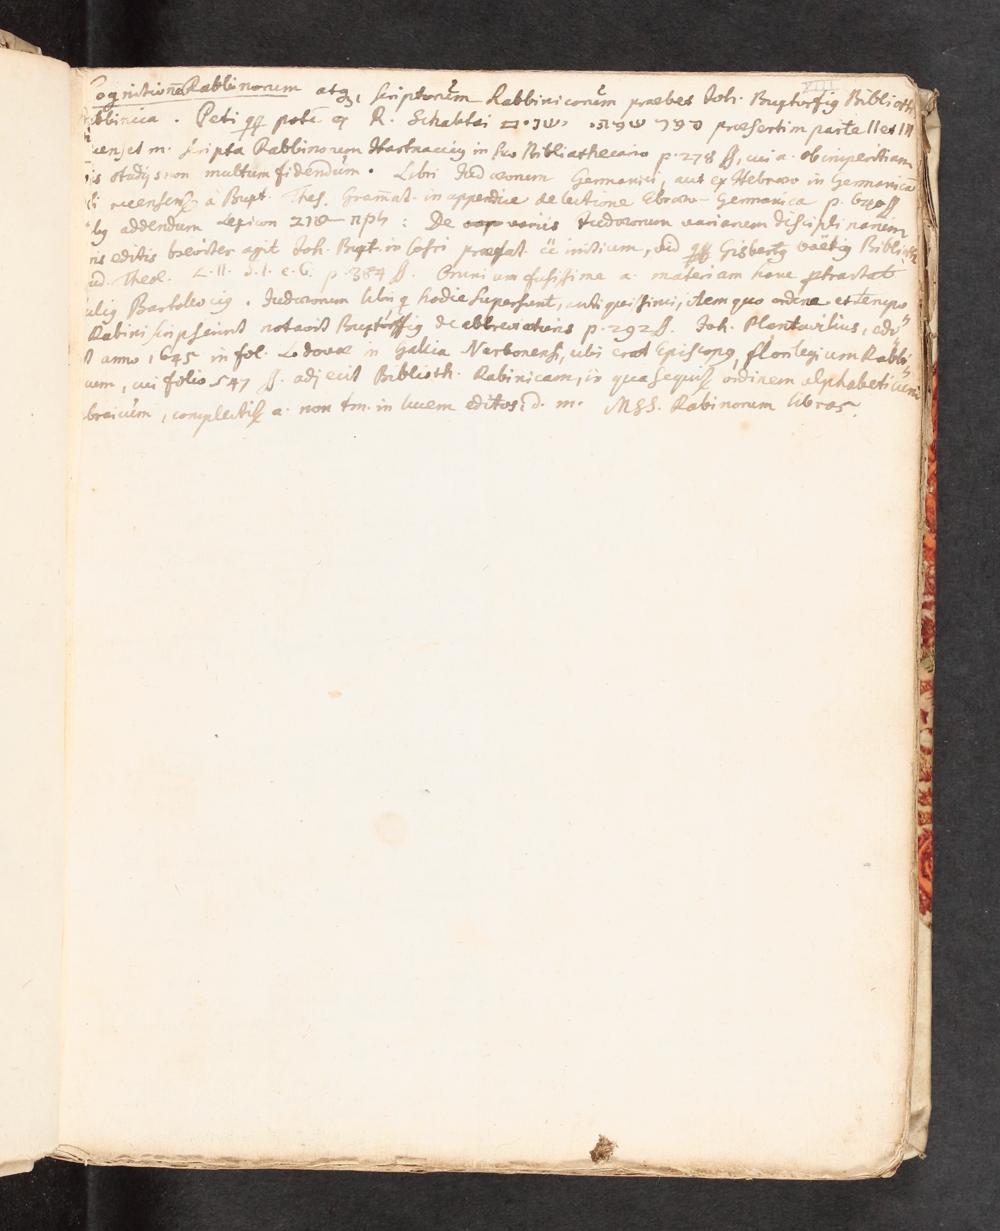 VIII
ognitionē Rabbinorum atq, scriptorum Rabbinicorum praebet Joh. Buxtorfig Biblioth
bbinica. Peti qq pote ex R. Schabtai ספר שפתי ישנים praesertim parte II et III
enset m. scripta Rabbinorum Hartnaccig in suo Bibliothecario p. 278 ff, cui a. ob imperitiam
is studijs non multum fidendum. Libri Judaeorum Germanici, aut ex Hebraeo in Germanica
recensens à Buxt. Thes. Gramat. in appendice de lectione Ebraeo-Germanica p.
bg addendum Lexicon : De variis Judaeorum variarum disciplinarum
ris editis breviter agit Joh. Buxt. in Cosri praefat. initium, vid qq Gisbertg Voëtig Biblioth
ud. Theol. L. II. S. I. c. 6. p. 384 ff. Omnium fusissime a. materiam hanc ptractat
ulig Bartoloccig. Judaeorum libri q hodie supersunt, antiquissimi, item quo ordine et tempo
Rabini scripserint notavit Buxtorffig de abbreviaturis p. 292 ff. Joh. Plantavitius, edi
t anno 1645 in fol. Lodovae in Gallia Narbonensi, ubi erat Episcopg, florilegium Rabbi
cum, cui folio 547 ff. adjecit Biblioth. Rabinicam, in qua sequit ordinem alphabeticum
braicum, complectit a. non tm. in lucem editos, d. m. MSS. Rabinorum libros.